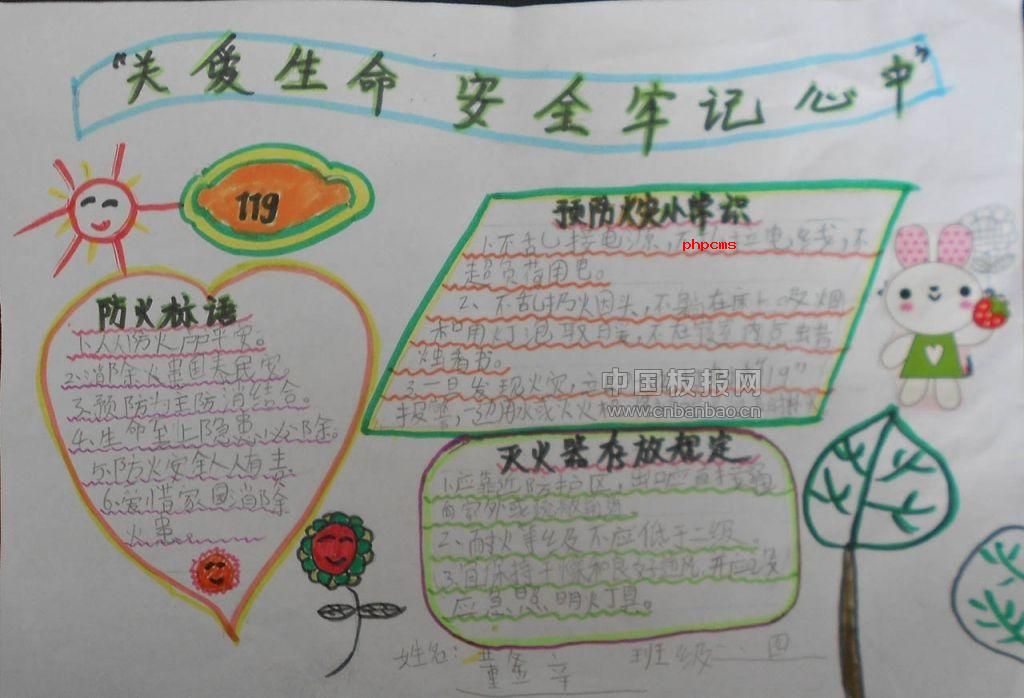 “关爱生命 安全牢记心中”
119
防火标语
1.人人防火户户平安。
2.消除火患国泰民安。
3.预防为主防消结合。
4.生命至上隐患必除。
5.防火安全人人有责
6.爱惜家园消除
火患……
预防火灾小常识
1.不乱接电源,不 电线,不
phpcms
超负荷用电。
2、不乱扔火因头,不躺在床上吸烟
和用灯泡取暖,不在寝室内点蜡
烛看书。
3.一旦发现火灾, "119"
报警,一边用水或灭火
中国板报网
www.cnbanbao.cn
灭火器存放规定
1.应靠近防护区,出口应直接通
向室外或疏散通道。
2、耐火等级不应低于二级。
3.宜保持干燥和良好通风,并应设
应急照明灯具。
姓名: 董金 班级 四